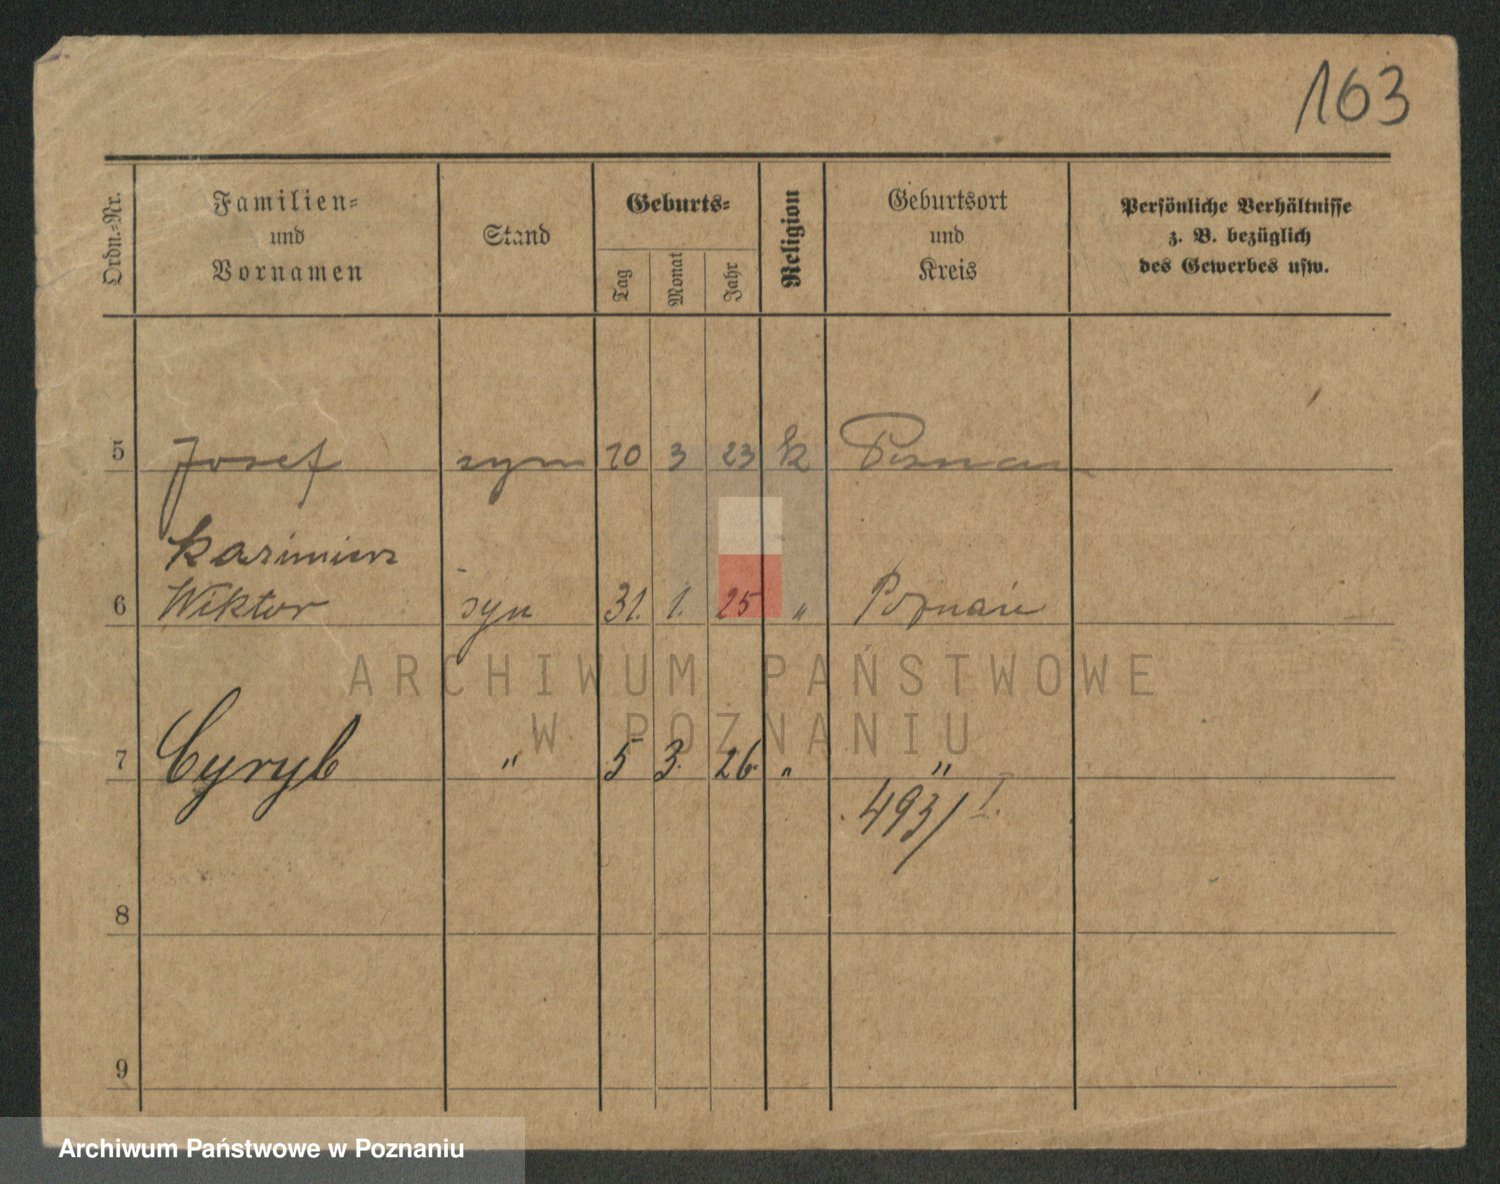 163
Ordn.-Nr.
Familien-
und
Vornamen
Stand
Geburts-
Tag
Monat
Jahr
Religion
Geburtsort
und
Kreis
Persönliche Verhältnisse
z. B. bezüglich
des Gewerbes usw.
5 Josef syn 3 23 k Poznań
Kazimierz
6 Wiktor syn 31. 1. 25 " Poznań
ARCHIWUM PAŃSTWOWE
W POZNANIU
7 Cyryl " 5 3. 26. " "
493/I.
8
9
Archiwum Państwowe w Poznaniu